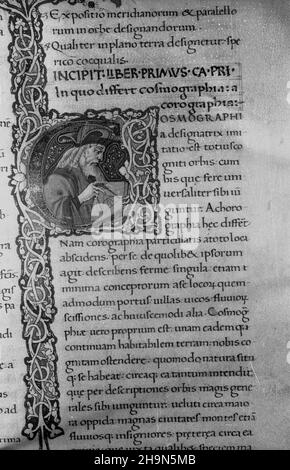 Expositio meridianorum & parallelo
rum in orbe designandorum.
Qualiter in plano terra designetur spe
rico coequalis.
INCIPIT LIBER PRIMUS CA PRI
In quo differt cosmographia: a
corographia:
COSMOGRAPHI
a designatrix imi
tatio est totius co
gniti orbis: cum
his que fere uni
uersaliter sibi iū
guntur. A choro
graphia hec differt
Nam corographia particularis a toto loca
abscidens. per se de quolib& ipsorum
agit. describens ferme singula. etiam
minima conceptorum a se locorū. quem
admodum portus uillas. uicos. fluuiorū
scissiones. ac huiuscemodi alia. Cosmog
phie uero proprium est: unam eadem q
continuam habitabilem terram. nobis co
gnitam ostendere. quomodo natura situ
q se habeat. circa q ea tantum intendit
que per descriptiones orbis magis gene
rales sibi iunguntur. ueluti circa maio
ra oppida magnas ciuitates montes etiā
fluuiosq insigniores. preterea circa eq
alamy
Image ID: 2H9N5MB
www.alamy.com